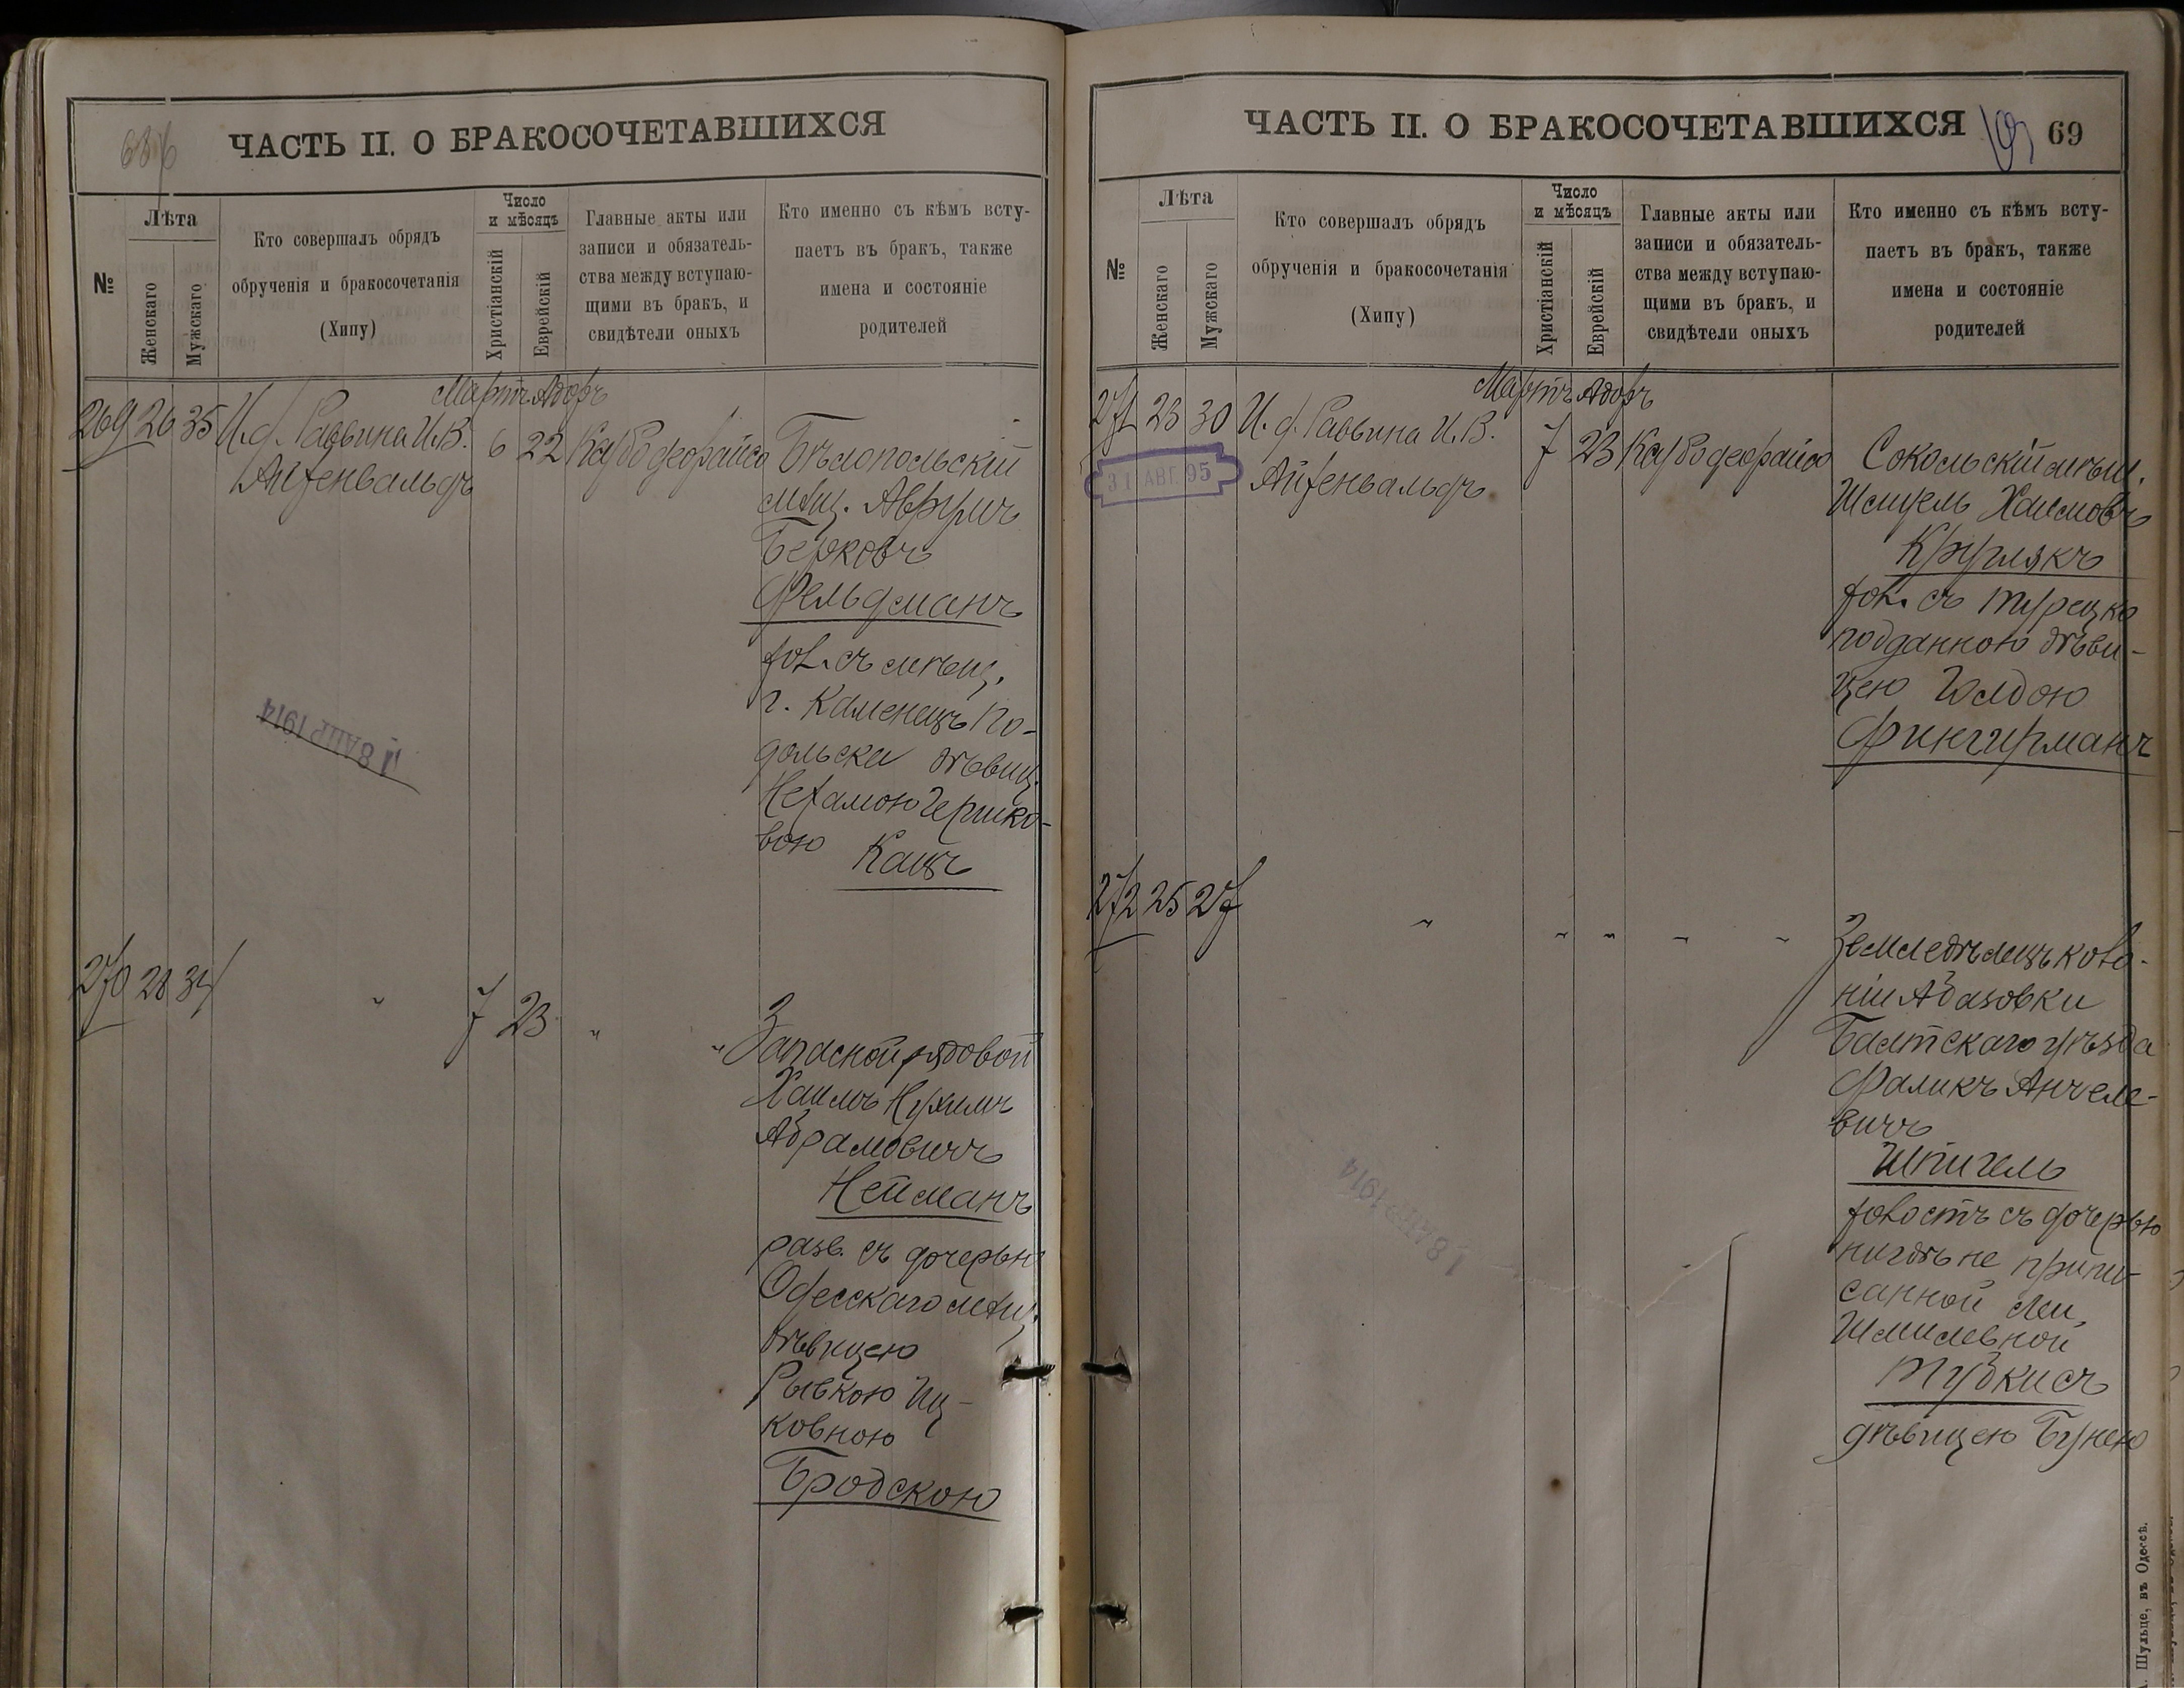 ЧАСТЬ II. О БРАКОСОЧЕТАВШИХСЯ
№
Лѣта
Женскаго
Мужскаго
Кто совершалъ обрядъ
обрученія и бракосочетанія
(Хипу)
Число
и мѣсяцъ
Христіанскій
Еврейскій
Главные акты или
записи и обязатель-
ства между вступаю-
щими въ бракъ, и
свидѣтели оныхъ
Кто именно съ кѣмъ всту-
паетъ въ бракъ, также
имена и состояніе
родителей
Мартъ Адоръ
269 26 35 И. д. Раввина И. В. 6 22
Айзенвальдъ
Бѣлопольскій
мѣщ. Аврумъ
Берковъ
Фельдманъ
хол. съ мѣщ.
г. Каменецъ По-
дольска дѣвиц.
Нехамою Гершко-
вою Кацъ
18 АПР 1914
270 28 34 " 7 23 " "
Запасной рядовой
Хаимъ Нухимъ
Абрамовичъ
Нейманъ
разв. съ дочерью
Одесскаго мѣщ.
дѣвицею
Рывкою Иц-
ковною
Бродскою
ЧАСТЬ II. О БРАКОСОЧЕТАВШИХСЯ
69
№
Лѣта
Женскаго
Мужскаго
Кто совершалъ обрядъ
обрученія и бракосочетанія
(Хипу)
Число
и мѣсяцъ
Христіанскій
Еврейскій
Главные акты или
записи и обязатель-
ства между вступаю-
щими въ бракъ, и
свидѣтели оныхъ
Кто именно съ кѣмъ всту-
паетъ въ бракъ, также
имена и состояніе
родителей
Мартъ Адоръ
271 23 30 И. д. Раввина И. В. 7 23
Айзенвальдъ
31 АВГ. 95
Сокольскій мѣщ.
Шмуель Хаимовъ
Круглякъ
хол. съ турецко
подданною дѣви-
цею Голдою
Фингирманъ
272 25 27 " " " " "
Земледѣлецъ коло-
ніи Абазовки
Балтскаго уѣзда
Фаликъ Анчеле-
вичъ
Шпигель
холостъ съ дочерью
нигдѣ не припи-
санной Леи
Шмилевной
Тубкисъ
дѣвицею Бунею
18 АПР 1914
Шульце, въ Одессѣ.